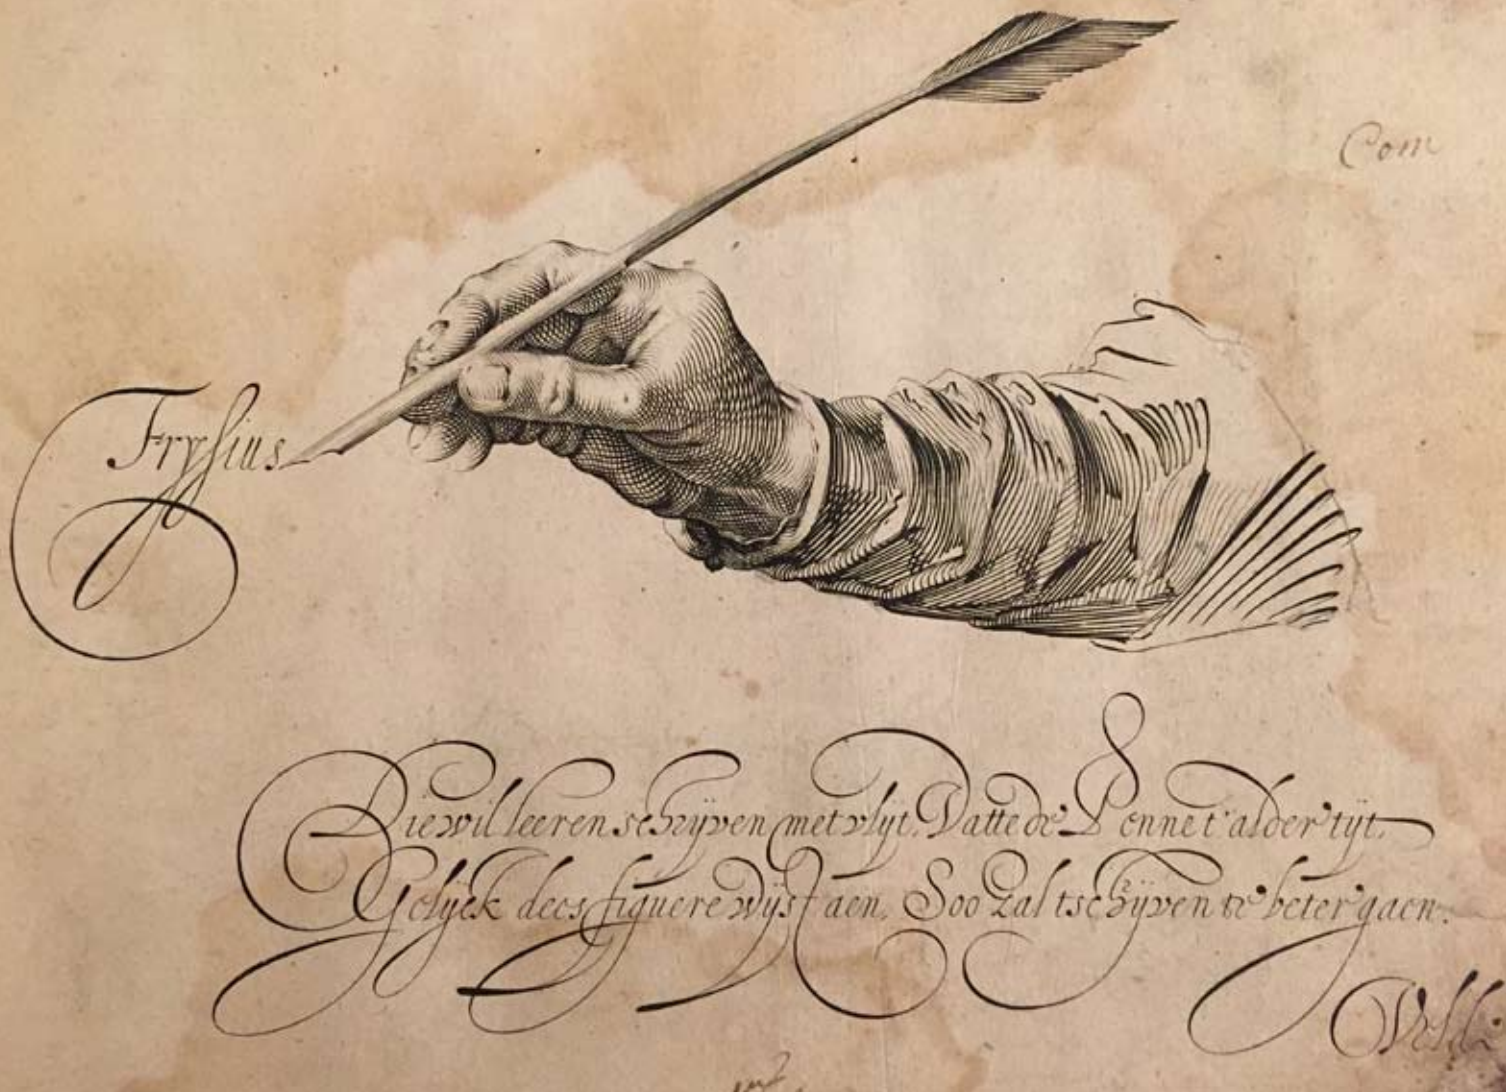 Com
Frysius
Die wil leeren schrijven met vlijt. Datte de Penne t'alder tijt.
Gelijck dees figuere wijst aen. Soo zal tschijven te beter gaen.